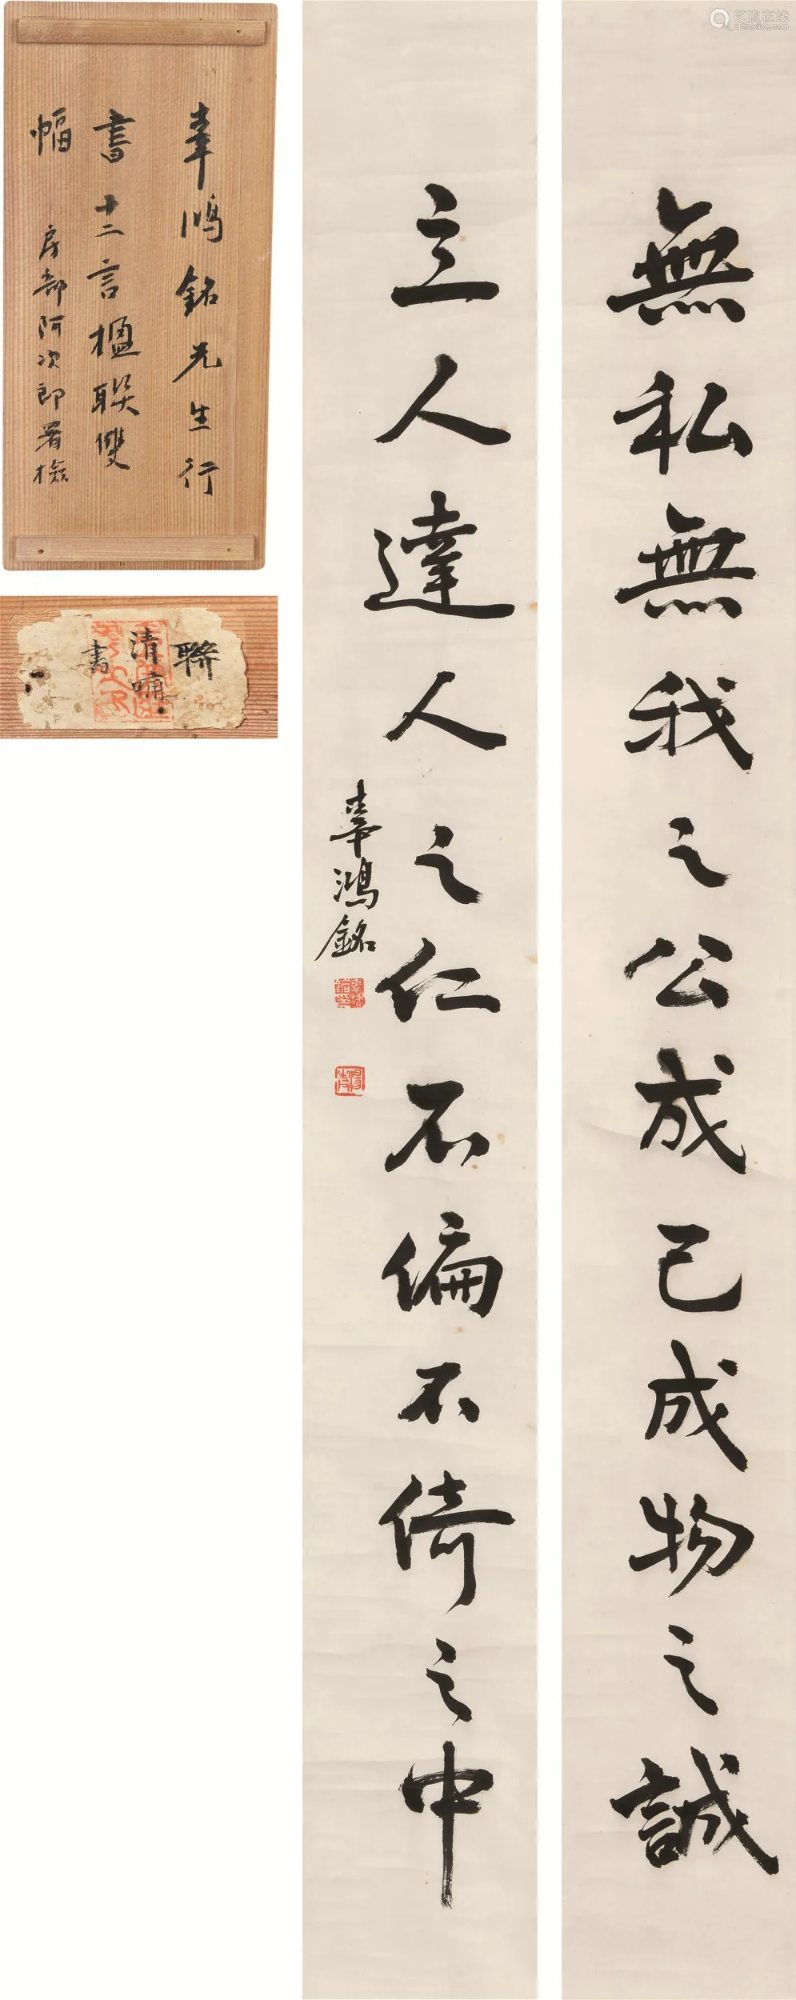 無私無我之公成己成物之誠
立人達人之仁不偏不倚之中
辜鴻銘
辜鴻銘先生行
書十二言楹聯雙
幅
房部阿次郎署檢
聯
清
書
艺典在线